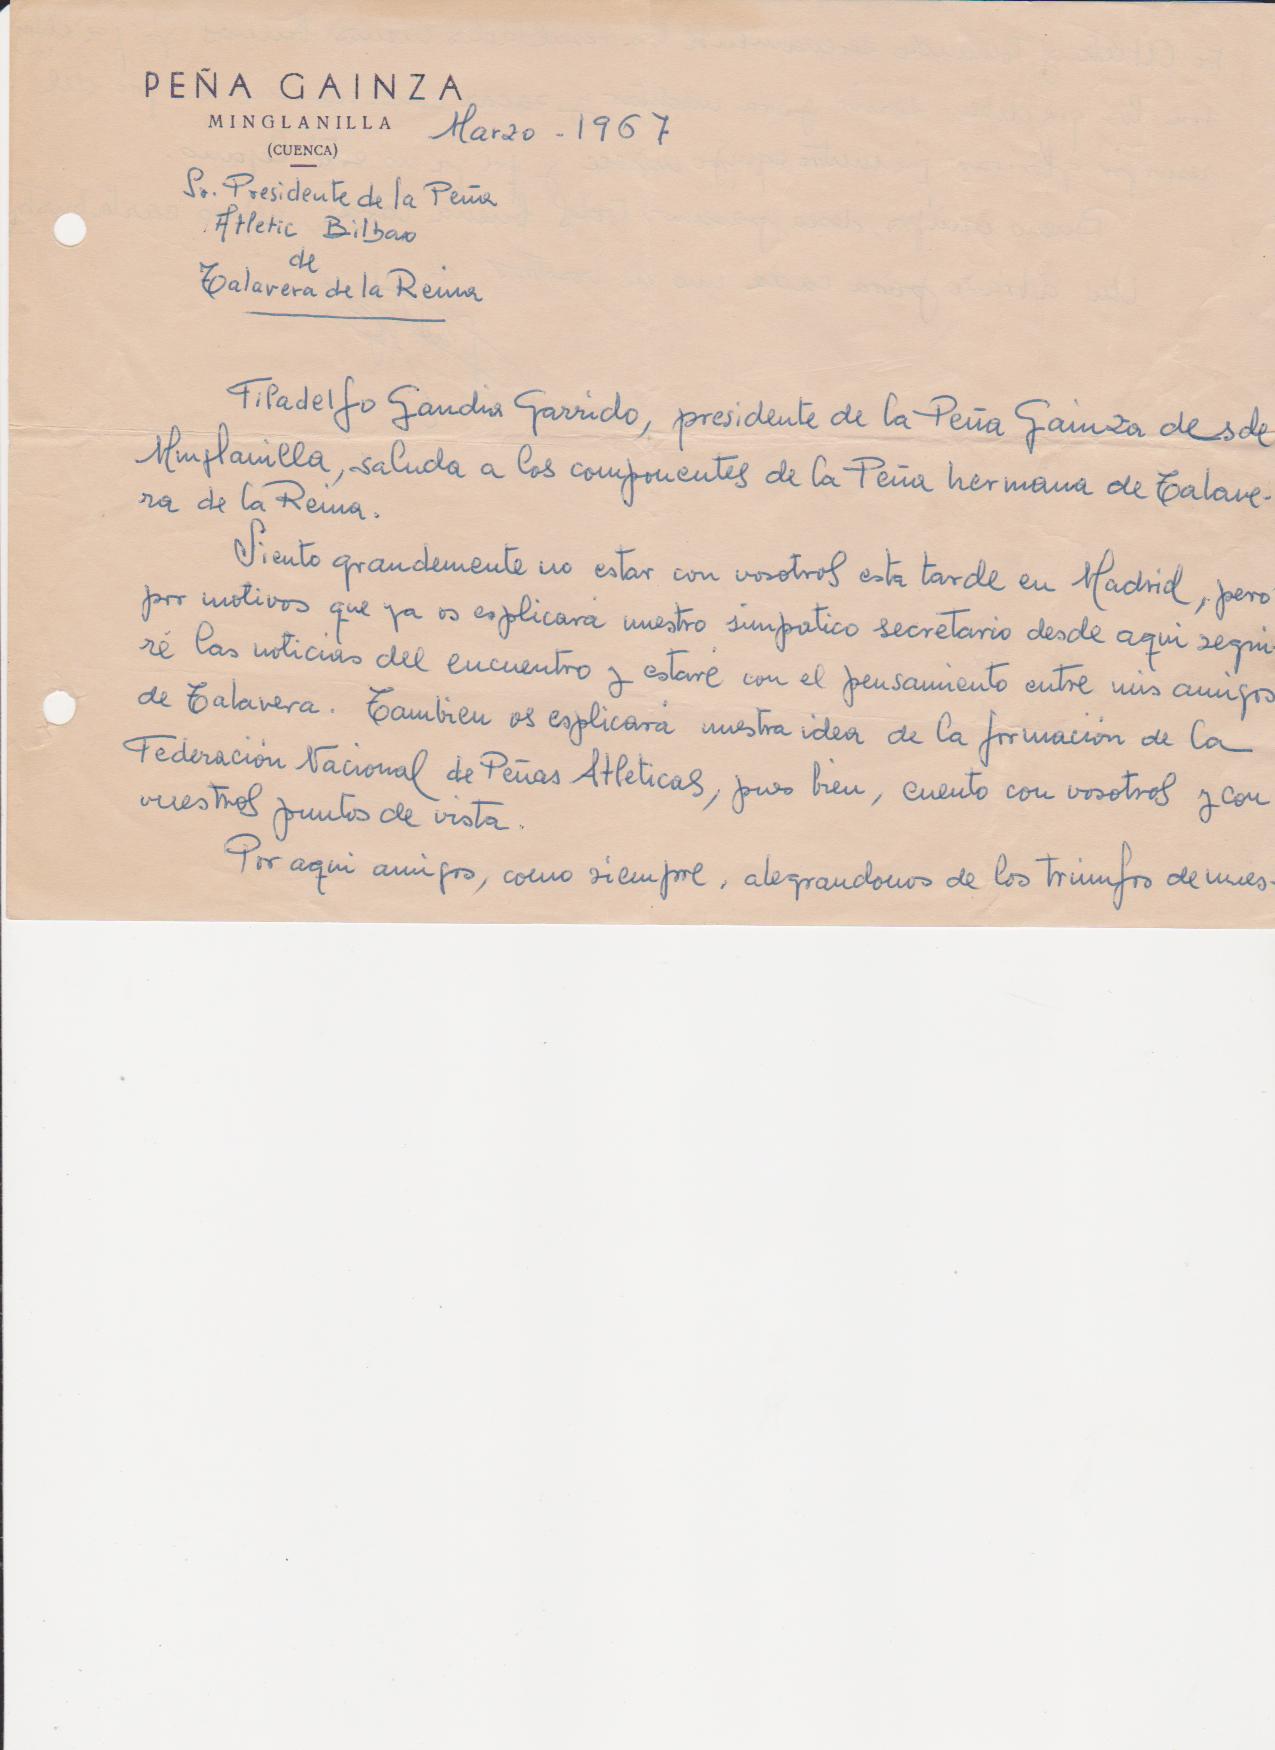 PEÑA GAINZA
MINGLANILLA
(CUENCA)
Marzo - 1967
Sr. Presidente de la Peña
Atletic Bilbao
de
Talavera de la Reina
Filadelfo Gandia Garrido, presidente de la Peña Gainza desde
Minglanilla, saluda a los componentes de la Peña hermana de Talave-
ra de la Reina.
Siento grandemente no estar con vosotros esta tarde en Madrid, pero
por motivos que ya os esplicará nuestro simpatico secretario desde aqui segui-
ré las noticias del encuentro y estaré con el pensamiento entre mis amigos
de Talavera. Tambien os esplicará nuestra idea de la formación de la
Federación Nacional de Peñas Atleticas, pues bien, cuento con vosotros y con
vuestros puntos de vista.
Por aqui amigos, como siempre, alegrandonos de los triunfos de nues-